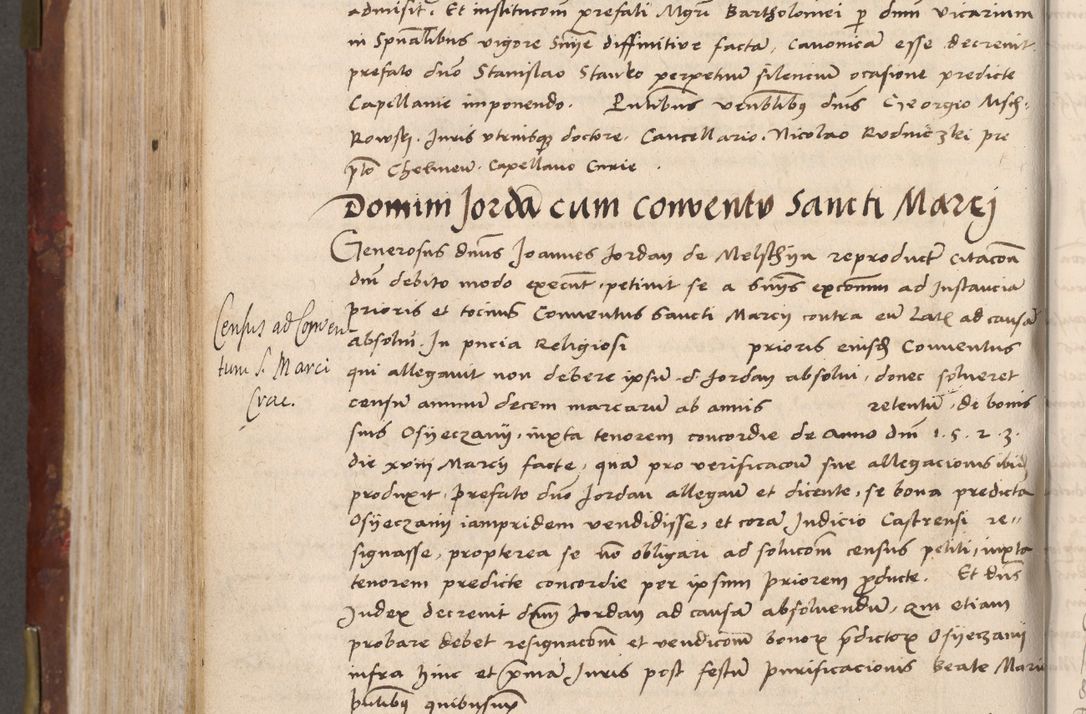 admisit. Et institucom prefati Mgri Bartholomei p dnm vicarium
in Spualibus vigore Snie diffinitive facta, Canonica esse decrevit
prefato dno Stanislao Stanko perpetuu silenciu ocasione predicte
Capellanie imponendo. Pntibus venblibq dnis Georgio Msch-
Rowski. Juris vtriusq doctore. Cancellario. Nicolao Rudniczki pre
pto Capellano Curie.
Domini Jorda cum conventu Sancti Marcj
Generosus dnus Joannes Jordan de Melsthijn reproduct citacoa
dni debito modo execut, petivit se a sniis excomm ad Instancia
prioris et tocius Conventus Sancti Marcij contra eu Lat ad causa
absolui. In pncia Religiosi prioris eiusd Conventus
qui allegavit non debere ipsu d Jordan absolui, donec solveret
censu annuu decem marcaru ab annis retentu, de bonis
suis Osijeczanij, iuxta tenorem concordie de Anno dni 1.5.2.3.
die xviij Marcij facte, qua pro verificacoe sue allegacionis ibid
produxit. Prefato dno Jordan allegan et dicente, se bona predicta
Osijeczanij iampridem vendidisse, et cora Judicio Castrensi re-
signasse, propterea se no obligari ad solucom census petiti, iuxta
tenorem predicte concordie per ipsum priorem producte. Et dnus
Judex decrevit dnm Jordan ad causa absolvendu, qui etiam
probare debet resignacom et vendicom bonor predictor Osijeczanij
infra hinc et prima Juris post festu purificacionis beate Marie
pntibq quibussup
Census ad Conven
tum S. Marci
Crac.